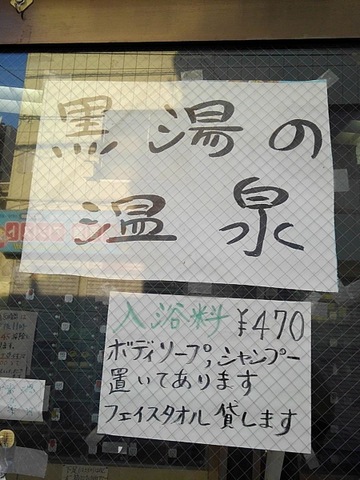 黒湯の
温泉
入浴料 ¥470
ボディソープ,シャンプー
置いてあります
フェイスタオル 貸します